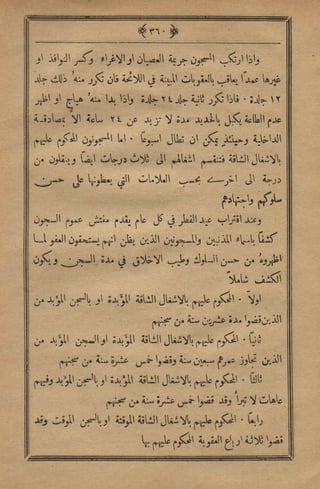 ﴿ ٣٦٠ ﴾
واذا ارتكب المسجون جريمة العصيان او الاغراء وكسر النوافذ او
غيرها عمداً يعاقب بالعقوبات المبينة في اللائحة فان تكرر منهُ ذلك جلد
١٢ جلدة · فاذا تكرر ثانية جلد ٢٤ جلدة واذا بدا منهُ هياج او اظهر
عدم الطاعة يكبل بالحديد مدة لا تزيد عن ٢٤ ساعة الا بمصادقة
الداخلية وحينئذ يمكن ان تطال اسبوعاً · اما المسجونون المحكوم عليهم
بالاشغال الشاقة فتنقسم اشغالهم الى ثلاث درجات ايضاً وينقلون من
درجة الى اخرى بحسب العلامات التي يعطونها على حسن
سلوكهم واجتهادهم
وعند اقتراب عيد الفطر في كل عام يقدم مفتش عموم السجون
كشفاً باسماء المذنبين والمسجونين الذين يظن انهم يستحقون العفو لما
اظهروهُ من حسن السلوك وطيب الاخلاق في مدة السجن ويكون
الكشف شاملاً
اولاً · المحكوم عليهم بالاشغال الشاقة المؤبدة او بالسجن المؤبد من
الذين قضوا مدة عشرين سنة من سجنهم
ثانياً · المحكوم عليهم بالاشغال الشاقة المؤبدة او السجن المؤبد من
الذين تجاوز عمرهم سبعين سنة وقضوا خمس عشرة سنة من سجنهم
ثالثاً · المحكوم عليهم بالاشغال الشاقة المؤبدة او بالسجن المؤبد وفيهم
عاهات لا تبرأ وقد قضوا خمس عشرة سنة من سجنهم
رابعاً · المحكوم عليهم بالاشغال الشاقة الموقتة او بالسجن الموقت وقد
قضوا ثلاثة ارباع العقوبة المحكوم عليهم بها